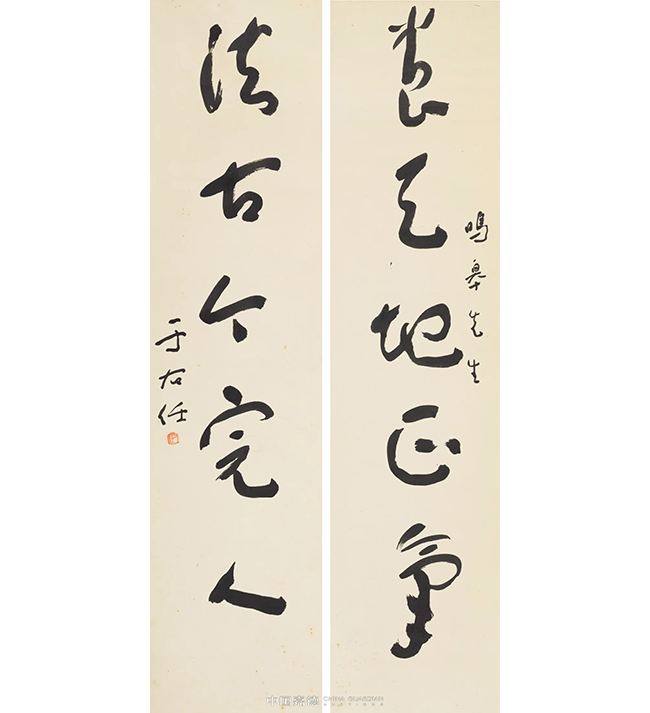 養天地正氣
鳴皋先生
法古今完人
于右任
中国嘉德 CHINA GUARDIAN